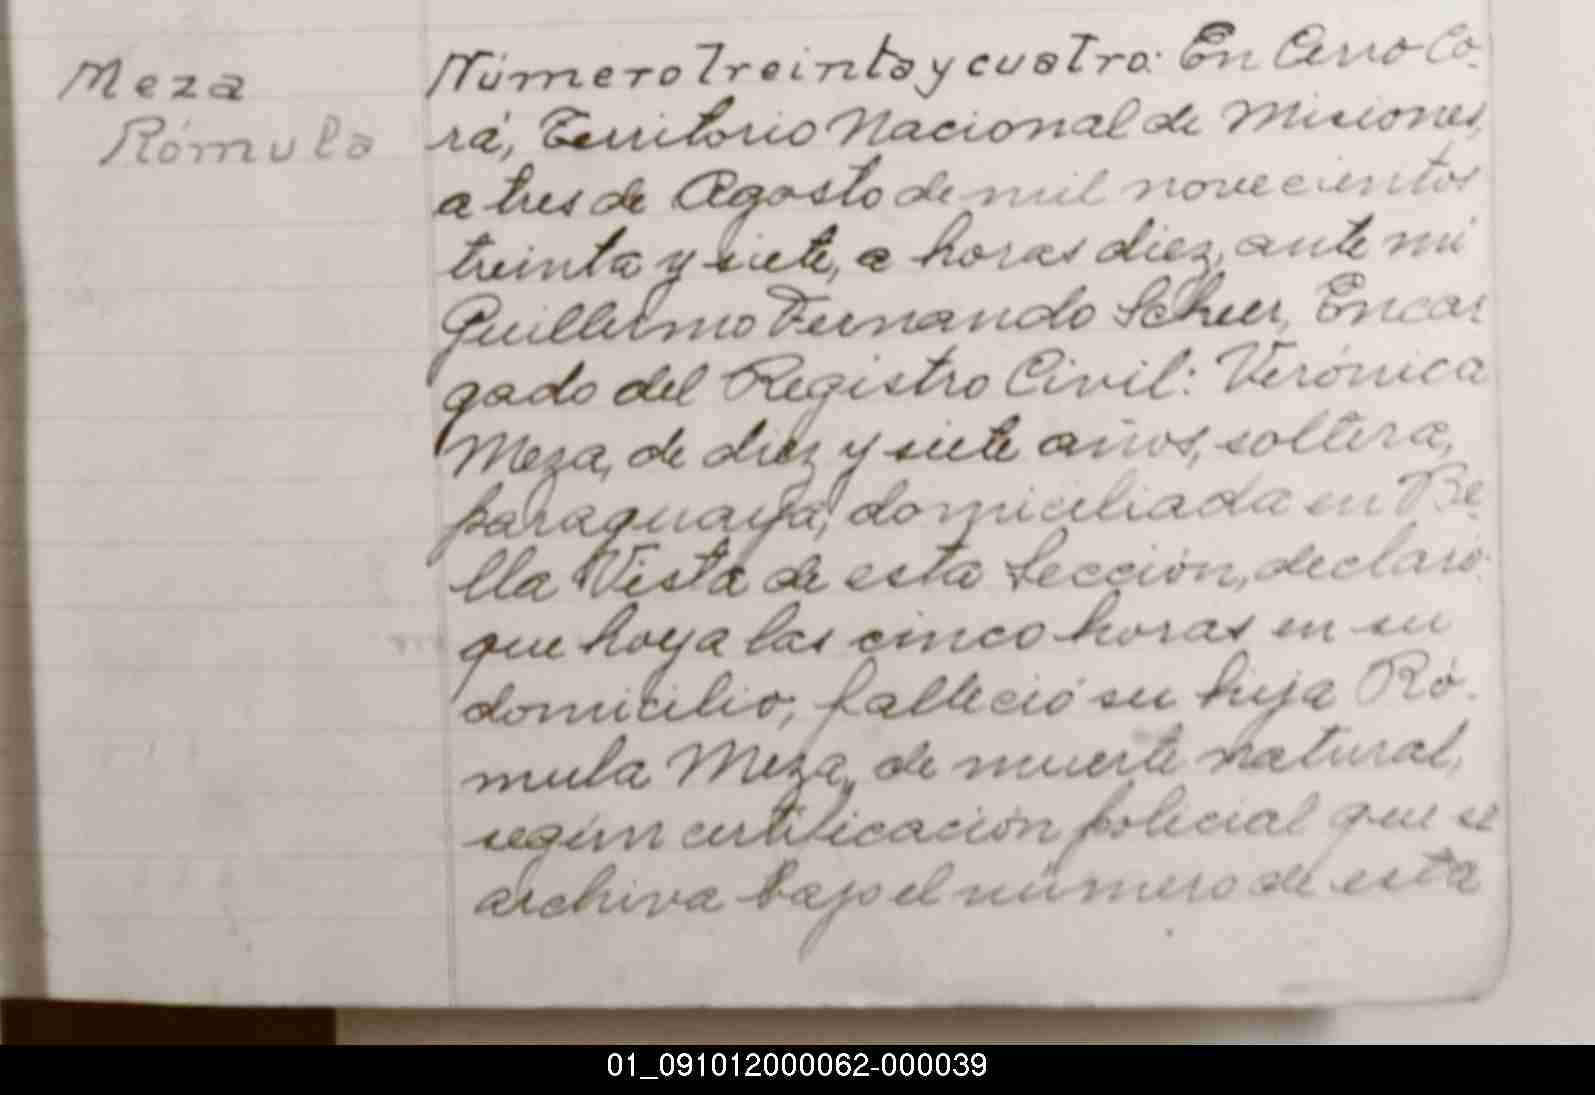 Meza
Rómula
Número Treinta y cuatro: En Cerro Co-
rá, Territorio Nacional de Misiones,
a tres de Agosto de mil novecientos
treinta y siete, a horas diez, ante mi
Guillermo Fernando Scheer, Encar
gado del Registro Civil: Verónica
Meza, de diez y siete años, soltera,
paraguaya, domiciliada en Be-
lla Vista de esta Sección, declaró:
que hoy a las cinco horas en su
domicilio, falleció su hija Ró-
mula Meza, de muerte natural,
según certificación policial que se
archiva bajo el número de esta
01_091012000062-000039